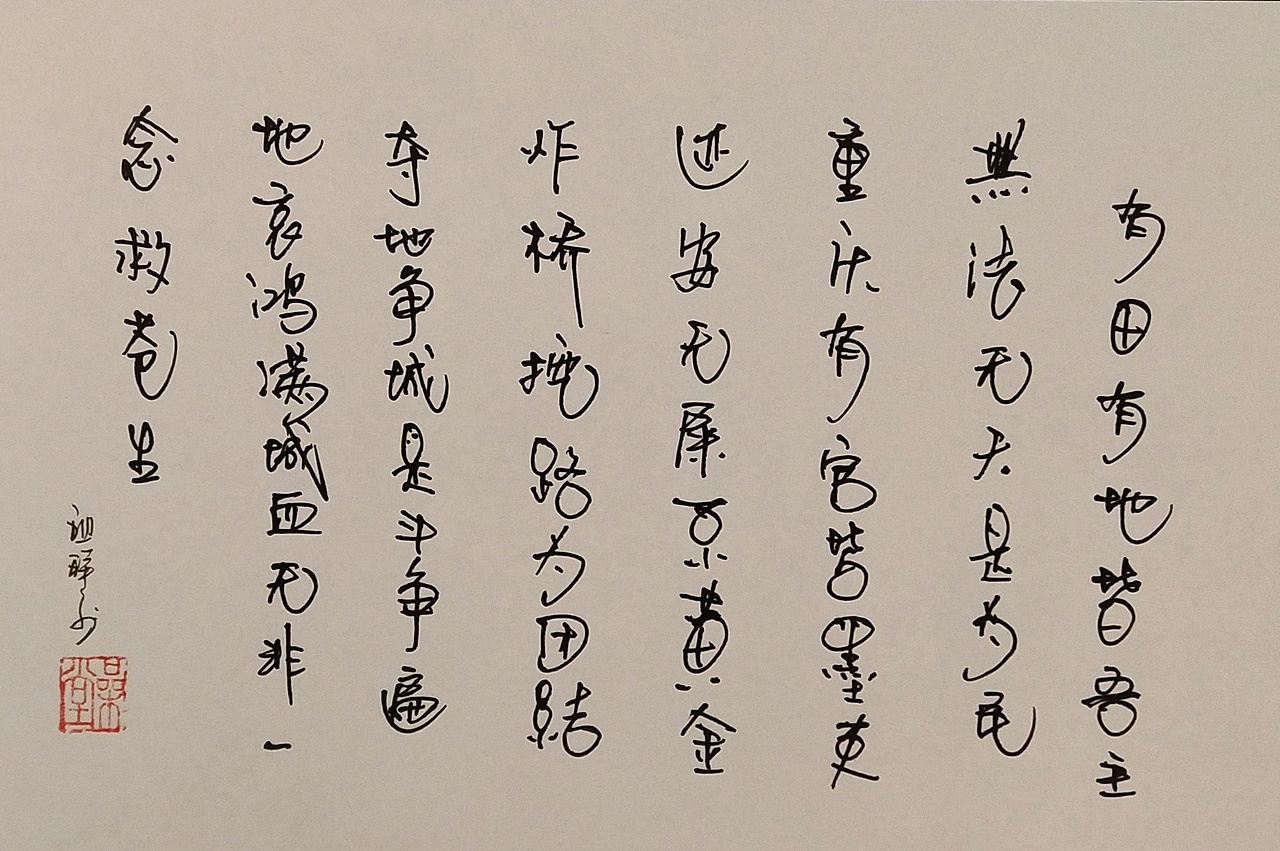 有田有地皆吾主
無法无天是为民
重庆有官皆墨吏
延安无屎不黄金
炸桥挖路为团结
夺地争城是斗争遍
地哀鸿满城血无非一
念救苍生